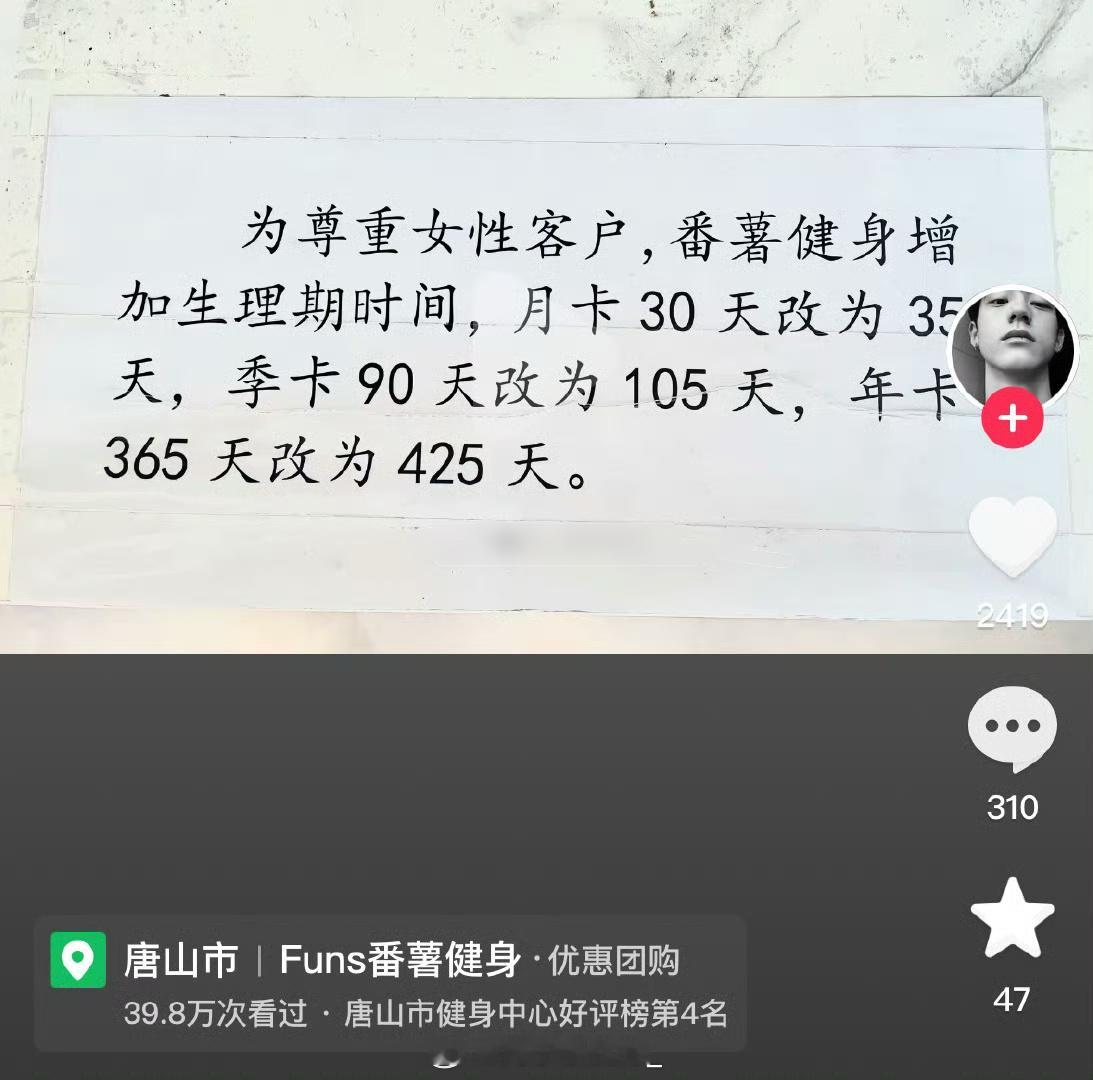 为尊重女性客户,番薯健身增
加生理期时间,月卡 30 天改为 35
天,季卡 90 天改为 105 天,年卡
365 天改为 425 天。
2419
310
47
唐山市｜Funs番薯健身·优惠团购
39.8万次看过 · 唐山市健身中心好评榜第4名